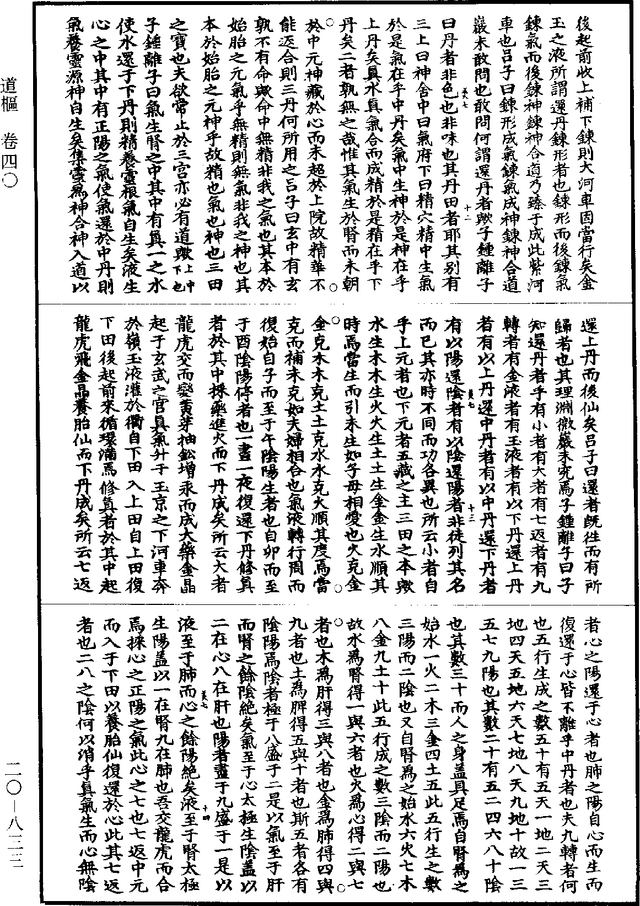 道樞　卷四〇
二〇—八二三
後起前收上補下鍊則大河車因當行矣金
玉之液所謂還丹鍊形者也鍊形而後鍊氣
鍊氣而後鍊神鍊神合道乃臻于成此紫河
車也呂子曰鍊形成氣鍊氣成神鍊神合道
巖未敢問也敢問何謂還丹者歟子鍾離子
曰丹者非色也非味也其丹田者耶其别有
三上曰神舍中曰氣府下曰精穴精中生氣
於是氣在乎中丹矣氣中生神於是神在乎
上丹矣真水真氣合而成精於是精在乎下
丹矣二者孰無之哉惟其氣生於腎而未朝
於中元神藏於心而未超於上院故精華不
能返合則三丹何所用之呂子曰玄中有玄
孰不有命歟命中無精非我之氣也其本於
始胎之元氣乎無精則無氣非我之神也其
本於始胎之元神乎故精也氣也神也三田
之寶也夫欲常止於三宮亦必有道歟上中下也
子鍾離子曰氣生腎之中其中有真一之水
使水還于下丹則精養靈根氣自生矣液生
心之中其中有正陽之氣使氣還於中丹則
氣養靈源神自生矣集靈爲神合神入道以
還上丹而後仙矣呂子曰還者既往而有所
歸者也其理淵微巖未究焉子鍾離子曰子
知還丹者乎有小者有大者有七返者有九
轉者有金液者有玉液者有以下丹還上丹
者有以上丹還中丹者有以中丹還下丹者
有以陽還陰者有以陰還陽者非徒列其名
而已其亦時不同而功各異也所云小者自
乎上元者也下元者五藏之主三田之本歟
水生木木生火火生土土生金金生水順其
時爲當生而引未生如子母相愛也火克金
金克木木克土土克水水克火順其度爲當
克而補未克如夫婦相合也氣液轉行周而
復始自子而至于午陰陽生者也自卯而至
于酉陰陽停者也一晝一夜復還下丹修真
者於其中採藥進火而下丹成矣所云大者
龍虎交而變黄芽抽鉛增汞而成大藥金晶
起于玄武之宮真氣升于玉京之下河車奔
於嶺玉液灌於衢自下田入上田自上田復
下田後起前來循環滿焉修真者於其中起
龍虎飛金晶養胎仙而下丹成矣所云七返
者心之陽還于心者也肺之陽自心而生而
復還于心皆不離乎中丹者也夫九轉者何
也五行生成之數五十有五天一地二天三
地四天五地六天七地八天九地十故一三
五七九陽也其數二十有五二四六八十陰
也其數三十而人之身蓋具足焉自腎爲之
始水一火二木三金四土五此五行生之數
三陽而二陰也又自腎爲之始水六火七木
八金九土十此五行成之數三陰而二陽也
故水爲腎得一與六者也火爲心得二與七
者也木爲肝得三與八者也金爲肺得四與
九者也土爲脾得五與十者也斯五者各有
陰陽焉陰者極于八盛于二是以氣至于肝
而腎之餘陰絶矣氣至于心太極生陰蓋以
二在心八在肝也陽者盡于九盛于一是以
液至于肺而心之餘陽絶矣液至于腎太極
生陽蓋以一在腎九在肺也吾交龍虎而合
焉採心之正陽之氣此心之七也七返中元
而入于下田以養胎仙復還於心此其七返
者也二八之陰何以消乎真氣生而心無陰